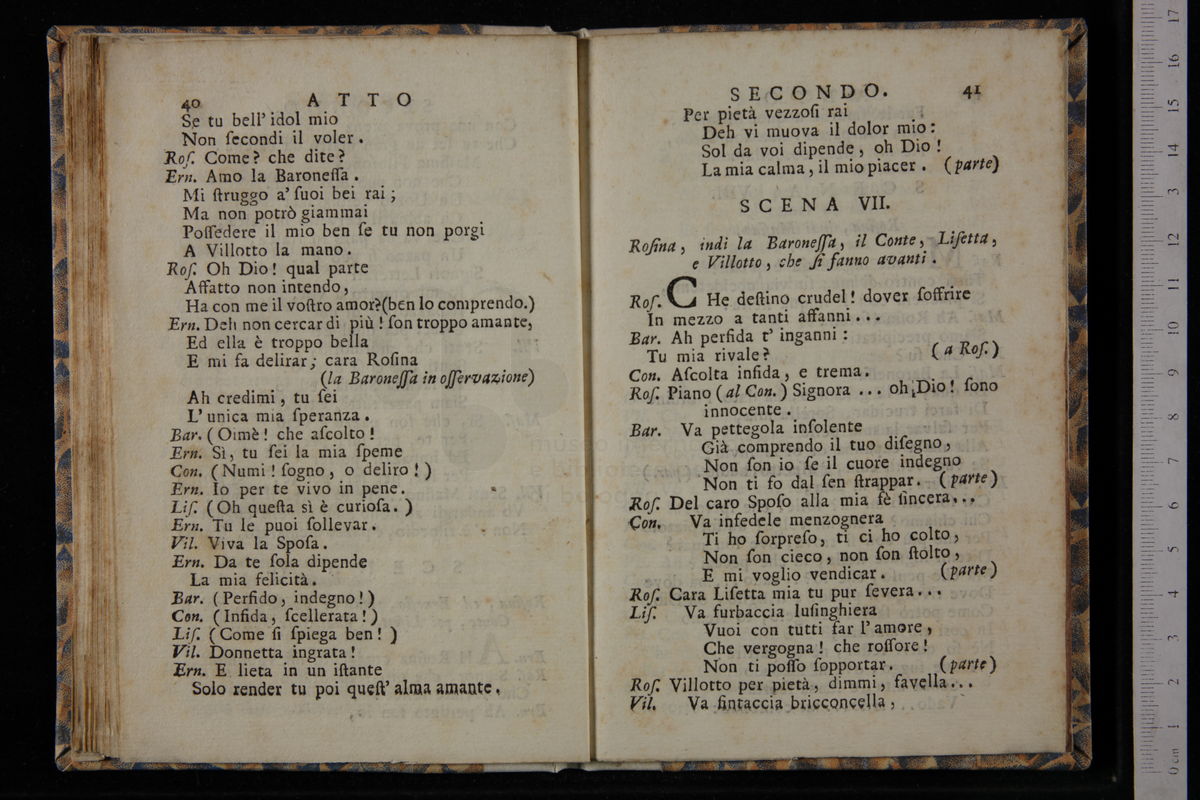 40 ATTO
Se tu bell' idol mio
Non ſecondi il voler.
Roſ. Come? che dite?
Ern. Amo la Baroneſſa.
Mi ſtruggo a' ſuoi bei rai;
Ma non potrò giammai
Poſſedere il mio ben ſe tu non porgi
A Villotto la mano.
Roſ. Oh Dio! qual parte
Affatto non intendo,
Ha con me il voſtro amor?(ben lo comprendo.)
Ern. Deh non cercar di più! ſon troppo amante,
Ed ella è troppo bella
E mi fa delirar; cara Roſina
(la Baroneſſa in oſſervazione)
Ah credimi, tu ſei
L'unica mia ſperanza.
Bar. (Oimè! che aſcolto!
Ern. Sì, tu ſei la mia ſpeme
Con. (Numi! ſogno, o deliro!)
Ern. Io per te vivo in pene.
Liſ. (Oh queſta sì è curioſa.)
Ern. Tu le puoi ſollevar.
Vil. Viva la Spoſa.
Ern. Da te ſola dipende
La mia felicità.
Bar. (Perfido, indegno!)
Con. (Infida, ſcellerata!)
Liſ. (Come ſi ſpiega ben!)
Vil. Donnetta ingrata!
Ern. E lieta in un iſtante
Solo render tu poi queſt' alma amante.
SECONDO. 41
Per pietà vezzoſi rai
Deh vi muova il dolor mio:
Sol da voi dipende, oh Dio!
La mia calma, il mio piacer. (parte)
SCENA VII.
Roſina, indi la Baroneſſa, il Conte, Liſetta,
e Villotto, che ſi fanno avanti.
Roſ. CHe deſtino crudel! dover ſoffrire
In mezzo a tanti affanni...
Bar. Ah perfida t' inganni:
Tu mia rivale? (a Roſ.)
Con. Aſcolta infida, e trema.
Roſ. Piano (al Con.) Signora ... oh Dio! ſono
innocente.
Bar. Va pettegola inſolente
Già comprendo il tuo diſegno,
Non ſon io ſe il cuore indegno
Non ti fo dal ſen ſtrappar. (parte)
Roſ. Del caro Spoſo alla mia fè ſincera...
Con. Va infedele menzognera
Ti ho ſorpreſo, ti ci ho colto,
Non ſon cieco, non ſon ſtolto,
E mi voglio vendicar. (parte)
Roſ. Cara Liſetta mia tu pur ſevera...
Liſ. Va furbaccia luſinghiera
Vuoi con tutti far l'amore,
Che vergogna! che roſſore!
Non ti poſſo ſopportar. (parte)
Roſ. Villotto per pietà, dimmi, favella...
Vil. Va fintaccia bricconcella,